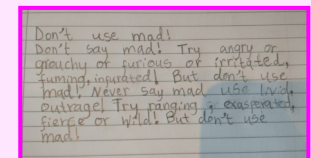 Don't use mad!
Don't say mad! Try angry or
grouchy or furious or irritated,
fuming, infurated! But don't use
mad! Never say mad use livid,
outrage! Try ranging, exasperated,
fierce or wild! But don't use
mad!